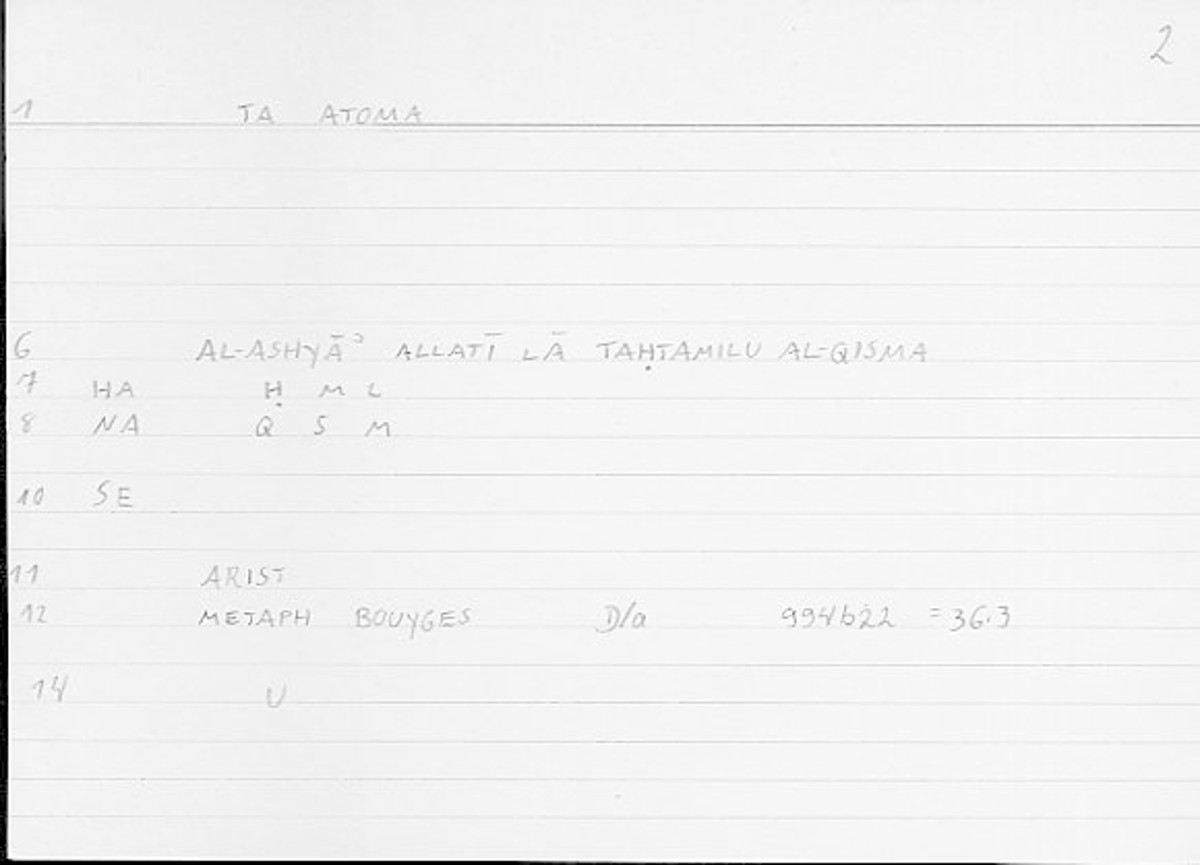 2
1 TA ATOMA
6 AL-ASHYĀʾ ALLATĪ LĀ TAḤTAMILU AL-QISMA
7 HA Ḥ M L
8 NA Q S M
10 SE
11 ARIST
12 METAPH BOUYGES D/a 994b22 = 36.3
14 U